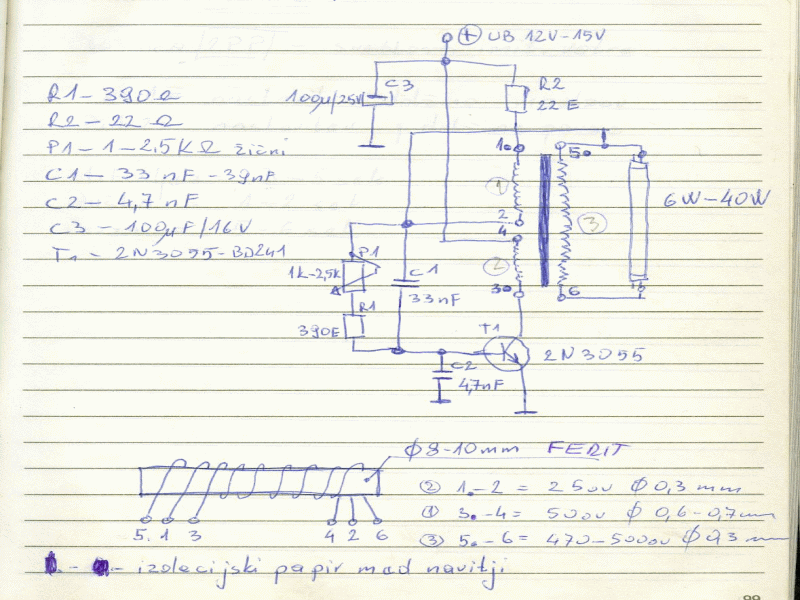 ⊕ UB 12V-15V
R1 - 390Ω
R2 - 22 Ω
P1 - 1 - 2,5KΩ žični
C1 - 33 nF - 39nF
C2 - 4,7 nF
C3 - 100μF/16V
T1 - 2N3055-BD241
C3
100μ/25V
R2
22 E
1.
5.
①
2
4
③
6W-40W
②
3.
6
P1
1K-2,5K
C1
33nF
R1
390E
T1
2N3055
C2
4,7nF
Φ8-10mm FERIT
5. 1 3 4 2 6
② 1.-2 = 250v Φ 0,3 mm
① 3.-4 = 500v Φ 0,6-0,7mm
③ 5.-6 = Φ 0,3 mm
izolecijski papir mad navitji